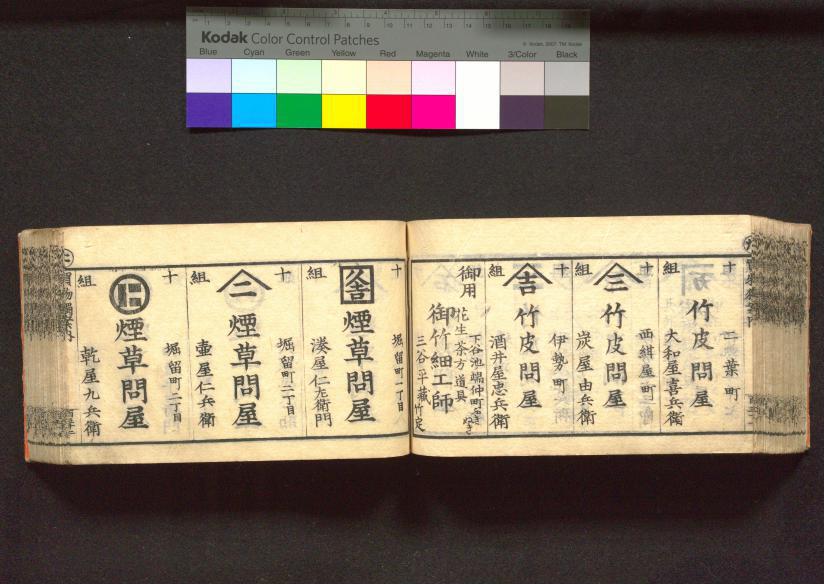 Kodak Color Control Patches
© Kodak, 2007 TM: Kodak
Blue Cyan Green Yellow Red Magenta White 3/Color Black
十
組
竹皮問屋
二葉町
大和屋喜兵衛
十
組
三
竹皮問屋
西紺屋町
炭屋由兵衛
十
組
吉
竹皮問屋
伊勢町
酒井屋忠兵衛
御用
花生茶方道具
下谷池端仲町
御竹細工師
三谷平蔵
十
組
煙草問屋
堀留町一丁目
湊屋仁左衛門
十
組
二
煙草問屋
堀留町二丁目
壷屋仁兵衛
十
組
煙草問屋
堀留町二丁目
乾屋九兵衛